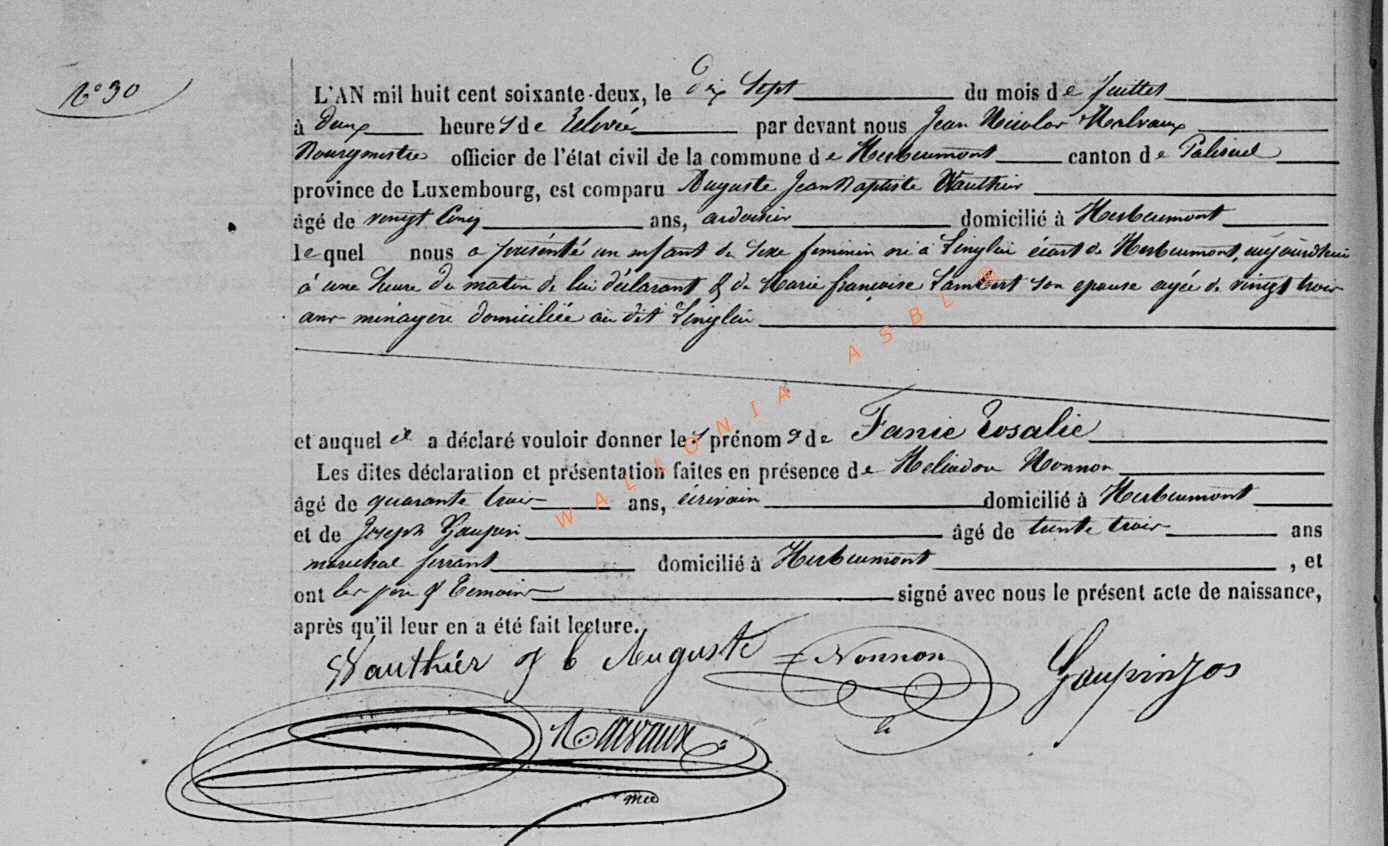 N° 30
L'AN mil huit cent soixante-deux, le dix Sept du mois de Juillet
à deux heures de relevée par devant nous Jean Nicolas
Bourgmestre officier de l'état civil de la commune de Herbeumont canton de Paliseul
province de Luxembourg, est comparu Auguste Jean Baptiste Wauthier
âgé de vingt Cinq ans, ardoisier domicilié à Herbeumont
lequel nous a présenté un enfant de sexe feminin né à Linglai écart de Herbeumont, aujourd'hui
à une heure du matin de lui déclarant & de Marie françoise Lambert son epouse agée de vingt trois
ans ménagère domiciliée au dit Linglai
et auquel il a déclaré vouloir donner les prénoms de Fanie Rosalie
Les dites déclaration et présentation faites en présence de Héliodore Nonnon
âgé de quarante trois ans, écrivain domicilié à Herbeumont
et de Joseph Goupin âgé de trente trois ans
marechal ferrant domicilié à Herbeumont, et
ont les père & temoins signé avec nous le présent acte de naissance,
après qu'il leur en a été fait lecture.
Wauthier J b Auguste Nonnon Goupin Jos
WALLONIA ASBL ®